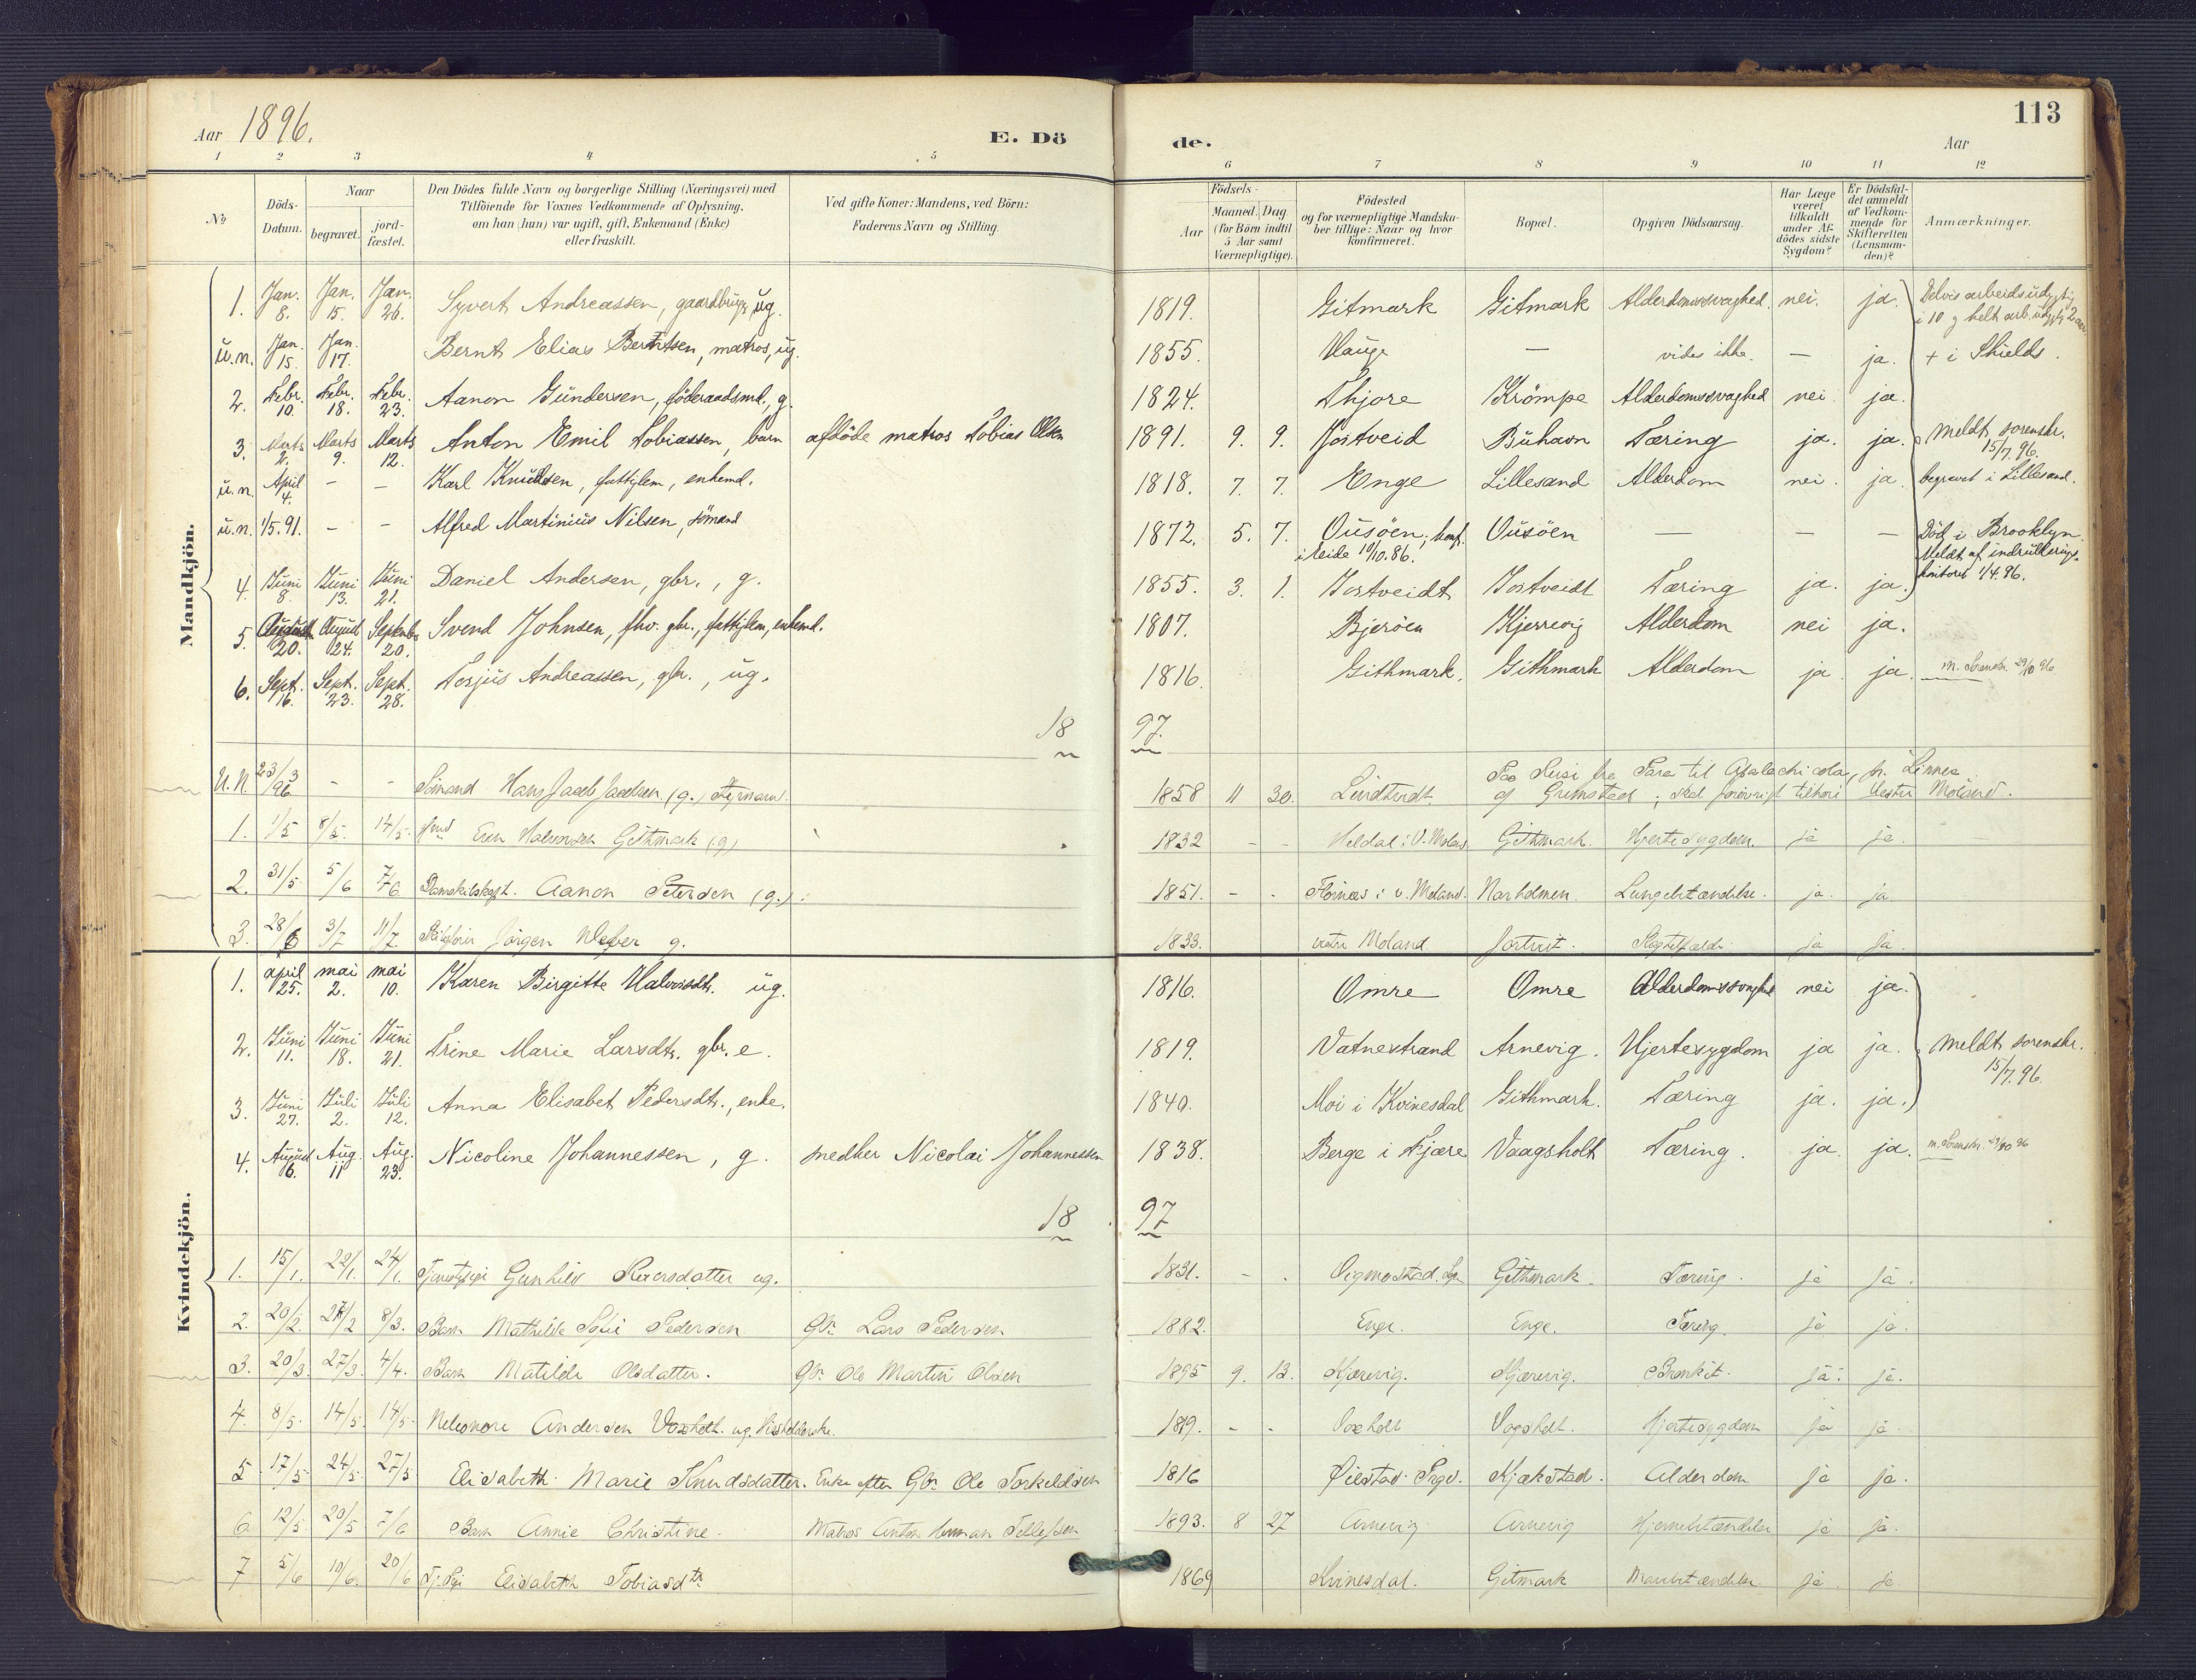 Aar 1896. E. Döde. Aar 113
1 2 3 4 5 6 7 8 9 10 11 12
No
Döds-Datum.
Naar begravet. jord-fæstet.
Den Dödes fulde Navn og borgerlige Stilling (Næringsvei) med Tilföiende for Voxnes Vedkommende af Oplysning, om han (hun) var ugift, gift, Enkemand (Enke) eller fraskilt.
Ved gifte Koner: Mandens, ved Börn: Faderens Navn og Stilling.
Födsels- Aar Maaned. Dag (for Börn indtil 5 Aar samt Værnepligtige).
Födested og for værnepligtige Mandskaber tillige: Naar og hvor konfirmeret.
Bopæl.
Opgiven Dödsaarsag.
Har Læge været tilkaldt under Afdödes sidste Sygdom?
Er Dödsfaldet anmeldt af Vedkommende for Skifteretten (Lensmanden)?
Anmærkninger.
Mandkjön.
1. Jan. 8. Jan. 15. Jan. 26. Syvert Andreassen, gaardbruger, ug. 1819. Gitmark Gitmark Alderdomssvaghed. nei. ja. Delvis arbeidsudygtig i 10 g helt arb. udygtig 2 aar
u.n. Jan. 15. Jan. 17. Bernt Elias Berntsen, matros, ug. 1855. Hauge — vides ikke. — ja. + i Shields.
2. Febr. 10. Febr. 18. Febr. 23. Aanon Gundersen, föderaadsmd., g. 1824. Thjore Krömpe Alderdomssvaghed nei ja.
3. Marts 2. Marts 9. Marts 12. Anton Emil Tobiassen, barn afdöde matros Tobias Olsen 1891. 9. 9. Jostveid Buhavn Tæring ja. ja. Meldt sorenskr. 15/7.96.
u.n. April 4. – – Karl Knudsen, fattiglem, enkemd. 1818. 7. 7. Enge Lillesand Alderdom nei. ja. begravet i Lillesand.
u.n. 1/5.91. – – Alfred Martinius Nilsen, sömand 1872. 5. 7. Ousöen; konf. i Eide 10/10.86. Ousöen — — — Död i Brooklyn. Meldt af indrulleringskontoret 1/4.96.
4. Juni 8. Juni 13. Juni 21. Daniel Andersen, gbr., g. 1855. 3. 1. Jostveidt Jostveidt Tæring ja. ja.
5. August 20. August 24. Septmbr 20. Svend Johnsen, fhv. gbr., fattiglem, enkemd. 1807. Bjeröen Kjerrevig Alderdom nei ja.
6. Sept. 16. Sept. 23. Sept. 28. Terjus Andreassen, gbr., ug. 1816. Githmark. Githmark Alderdom ja. ja. m. Sorenskr. 29/10 96
18 97.
U.N. 23/3 96 – – Sömand Hans Jacob Jacobsen (g.) Styrmand. 1858 11 30. Lindtvedt Paa Reise fra Para til Apalachicola, sk. Linnea af Grimstad; skal forövrigt tilhöre Vestre Moland.
1. 1/5 8/5. 14/5. Even Halvorsen Githmark (g) 1832 – – Heldal i V. Moland. Githmark. Hjertesygdom. ja ja.
2. 31/5 5/6 7/6 Damskibskapt. Aanon Petersen (g.). 1851. – – i V. Moland. Narholmen. Lungebetændelse. ja. ja.
3. 28/6 3/7 11/7. Jörgen Weber g. 1833. Vestre Moland Jortveit. Slagtilfælde. ja ja.
Kvindekjön.
1. april 25. mai 2. mai 10. Karen Birgitte Halvorsdtr. ug. 1816. Omre Omre Alderdomssvaghed nei ja.
2. Juni 11. Juni 18. Juni 21. Trine Marie Larsdtr. gbr. e. 1819. Vatnestrand Arnevig. Hjertesygdom ja ja. Meldt sorenskr. 15/7.96.
3. Juni 27. Juli 2. Juli 12. Anna Elisabet Pedersdtr., enke. 1840. Moi i Kvinesdal Githmark. Tæring ja. ja.
4. August 6. Aug. 11 Aug. 23. Nicoline Johannessen, g. snedker Nicolai Johannessen 1838. Berge i Fjære Vaagsholt Tæring. ja. ja. m. Sorenskr. 29/10 96
18 97
1. 15/1. 22/1. 24/1. Tjenestepige Gunhild Reiersdatter ug. 1831. – – Vigmostad. Githmark. Tæring. ja ja.
2. 20/2. 27/2 8/3. Barn Mathilde Sofie Pedersen Gbr. Lars Pedersen 1882. Enge. Enge. Tæring. ja ja.
3. 20/3. 27/3. 4/4. Barn Matilde Olsdatter. Gbr. Ole Martin Olsen 1895 9. 13. Kjærevig. Kjærevig. Bronkit. ja. ja.
4. 8/5. 14/5. 14/5. Neleonore Andersen Voxholt. ug. 1819. – – Voxholt Vogsholt. Hjertesygdom ja ja.
5 17/5 24/5. 27/5 Elisabeth Marie Knudsdatter. Enke efter Gbr. Ole Torkeldsen 1816 Øiestad Prgd. Kjækstad. Alderdom ja ja.
6. 12/5 20/5 7/6 Barn Annie Christine. Matros Anton Herman Tellefsen 1893. 8 27 Arnevig Arnevig Hjernebetændelse ja ja.
7 5/6 10/6. 20/6 Tj. Pige Elisabeth Tobiasdtr 1869 Kvinesdal. Gitmark ja. ja.